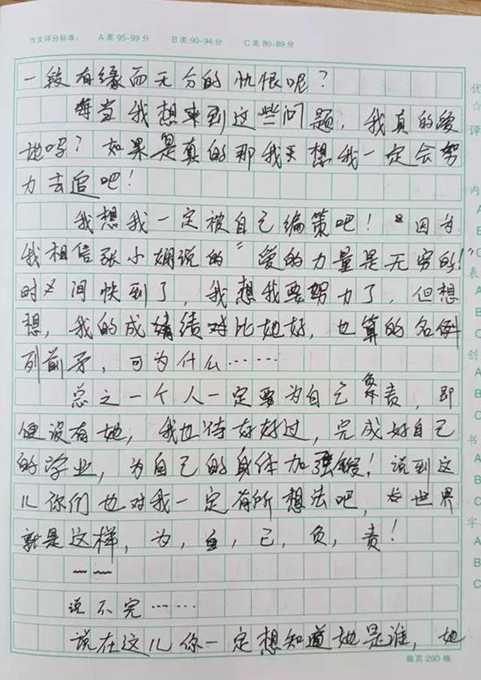 作文评分标准： A类95-99分 B类90-94分 C类80-89分
一段有缘而无分的仇恨呢？
每当我想来到这些问题，我真的爱
她吗？如果是真的那我天想我一定会努
力去追吧！
我想我一定被自己编策吧！“因为
我相信张小娴说的“爱的力量是无穷的！”
时间快到了，我想我要努力了，但想
想，我的成绩对比她好，也算的名例
列前矛，可为什么……
总之一个人一定要为自己负责，即
便没有她，我也待好好过，完成好自己
的学业，为自己的身体加强锻！说到这
儿你们也对我一定有所想法吧，世界
就是这样，为，自，己，负，责！
~~
说不完……
说在这儿你一定想知道她是谁，她